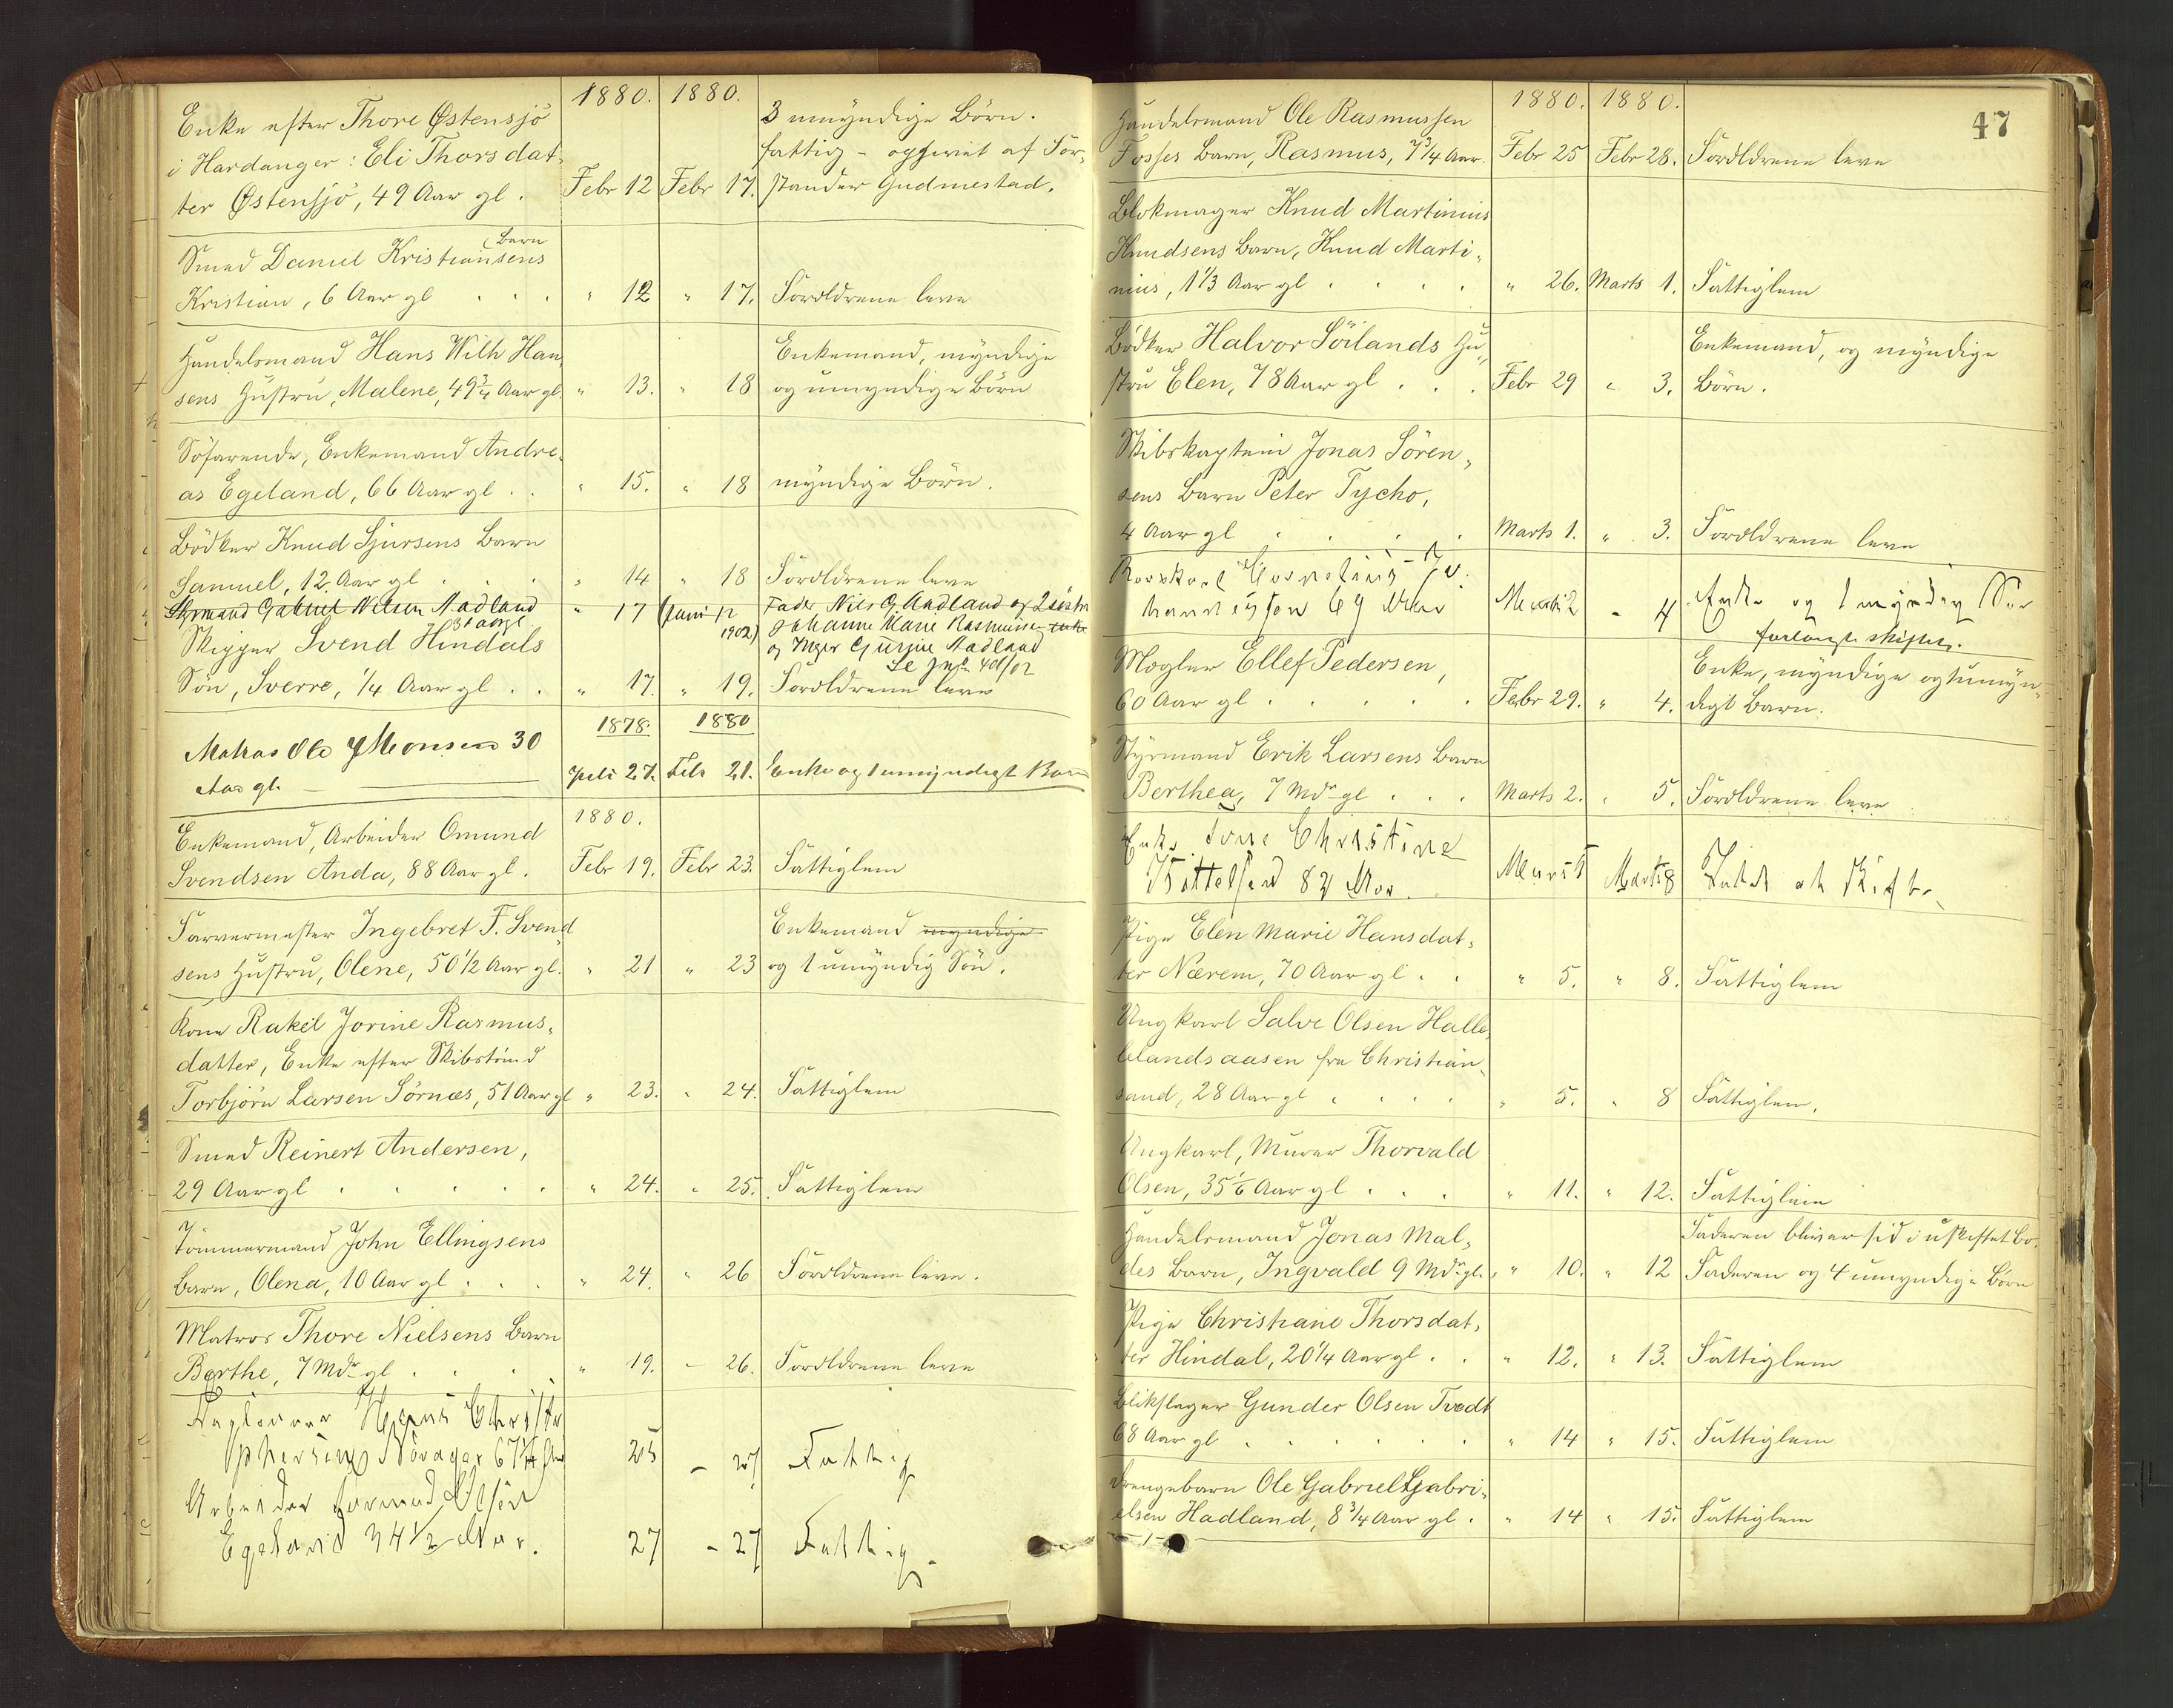 1880. 1880.
Enke efter Thore Østensjö 3 umyndige Börn.
i Hardanger: Eli Thorsdat- fattig - opgivet af For-
ter Østensjö, 49 Aar gl. Febr 12 Febr 17. stander Gudmestad.
Smed Daniel Kristiansens Barn
Kristian, 6 Aar gl . . . " 12 " 17. Forældrene leve
Handelsmand Hans Wilh Han- Enkemand, myndige
sens Hustru, Malene, 49 3/4 Aar gl. " 13. " 18 og umyndige Börn
Söfarende, Enkemand Andre-
as Egeland, 66 Aar gl . . " 15. " 18 myndige Börn.
Bödker Knud Sjursens Barn
Samuel, 12 Aar gl . . . " 14 " 18 Forældrene leve
Styrmand Gabriel Nilsen Aadland " 17 (Juni 12 Fader Nils G. Aadland og 2 söstre
31 aar gl. 1902) Johanne Marie Rasmussen enke
Skipper Svend Hindals og Inger Gurine Aadland
Se Jnl. 401/02
Sön, Sverre, 1/4 Aar gl . . " 17. " 19. Forældrene leve
1878. 1880
Matros Ole Monsen 30
Aar gl. Juli 27. Feb 21. Enke og 1 umyndigt Barn
1880.
Enkemand, Arbeider Omund
Svendsen Anda, 88 Aar gl. Febr 19. Febr 23. Fattiglem
Farvermester Ingebret F. Svend- Enkemand myndige
sens Hustru, Olene, 50 1/2 Aar gl. " 21 " 23 og 1 umyndig Sön.
Kone Rakel Jorine Rasmus-
datter, Enke efter Skibstömd
Torbjörn Larsen Sörnæs, 51 Aar gl " 23. " 24. Fattiglem
Smed Reinert Andersen,
29 Aar gl . . . . . " 24. " 25. Fattiglem
Tömmermand John Ellingsens
Barn, Olena, 10 Aar gl . . . " 24. " 26 Forældrene leve.
Matros Thore Nielsens Barn
Berthe, 7 Mdr gl . . . . " 19. " 26. Forældrene leve
Christo
phersen 25 - 27 Fattig
Arbeider Olsen
74 1/2 Aar. 27 - 27 Fattig.
47
1880. 1880.
Handelsmand Ole Rasmussen
Fosses Barn, Rasmus, 7 3/4 Aar. Febr 25 Febr 28. Forældrene leve
Blokmager Knud Martinius
Knudsens Barn, Knud Marti-
nius, 1 1/3 Aar gl . . . . " 26. Marts 1. Fattiglem
Bödker Halvor Söilands Hu- Enkemand, og myndige
stru Elen, 78 Aar gl . . . Febr 29 " 3. Börn.
Skibskaptein Jonas Sören-
sens Barn Peter Tycho,
4 Aar gl . . . . Marts 1. " 3. Forældrene leve
Cornelius
69 Aar Marts 2 - 4 Enke og 1 myndig Sön
forlangt skiftet.
Mægler Ellef Pedersen, Enke, myndige og 1 umyn-
60 Aar gl . . . . . Febr 29. " 4. digt Barn.
Styrmand Erik Larsens Barn
Berthea, 7 Mdr gl . . . Marts 2. " 5. Forældrene leve
Enke Christine
82 Aar. Marts 5 Marts 8 Intet at Skifte
Pige Elen Marie Hansdat-
ter Nærem, 70 Aar gl . . " 5. " 8. Fattiglem
Ungkarl Salve Olsen Halle-
landsaasen fra Christian-
sand, 28 Aar gl . . . . " 5. " 8 Fattiglem.
Ungkarl, Murer Thorvald
Olsen, 35 1/6 Aar gl . . . " 11. " 12. Fattiglem
Handelsmand Jonas Mal- Faderen bliver sid. i uskiftet Bo.
des Barn, Ingvald 9 Mdr gl. " 10. " 12 Faderen og 4 umyndige Börn
Pige Christiane Thorsdat-
ter Hindal, 20 1/4 Aar gl . . " 12. " 13. Fattiglem
Blikslager Gunder Olsen Tvedt
68 Aar gl . . . . . . " 14 " 15. Fattiglem
Drengebarn Ole Gabriel Gabri-
elsen Hadland, 8 3/4 Aar gl . " 14 " 15. Fattiglem